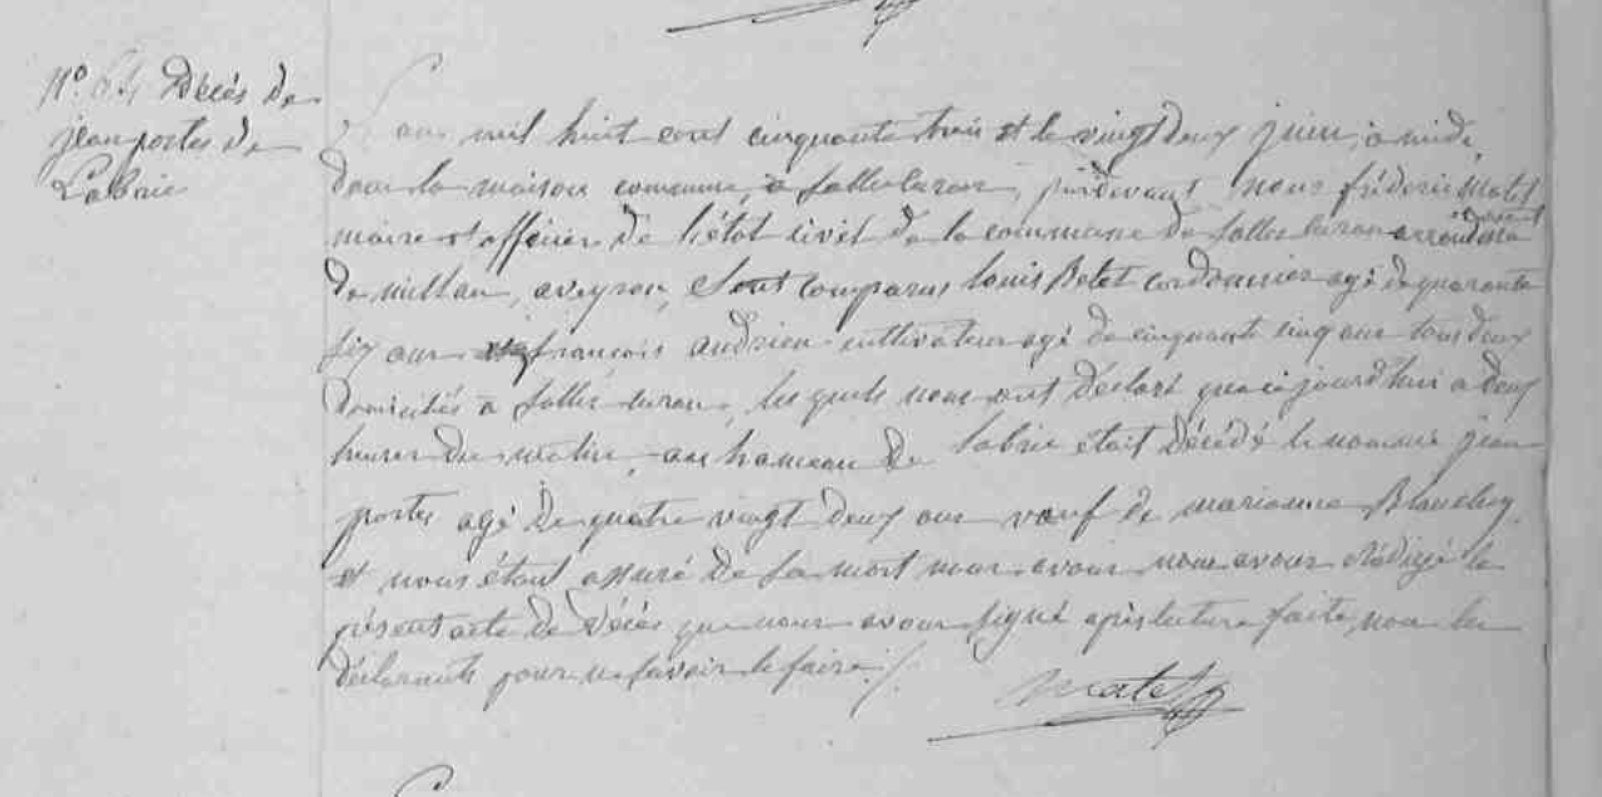 N° 64 Décès de
jean portes de
Labrie
L'an mil huit cent cinquante trois et le vingt deux juin, à midi,
dans la maison commune, à salles curan, pardevant nous fréderic Matet
maire et officier de l'état civil de la commune de salles curan arrondissement
de millau, aveyron, Sont comparus louis Belet cordonnier agé de quarante
six ans françois andrieu cultivateur agé de cinquante cinq ans tous deux
domiciliés à salles curan, les quels nous ont déclaré que cejourd'hui a deux
heures du matin, au hameau de labrie était décédé le nommé jean
portes agé de quatre vingt deux ans veuf de marianne
et nous étant assuré de sa mort nous avons nous avons rédigé le
présent acte de décès que nous avons signé après lecture faite, non les
déclarants pour ne savoir le faire ./.
Matet